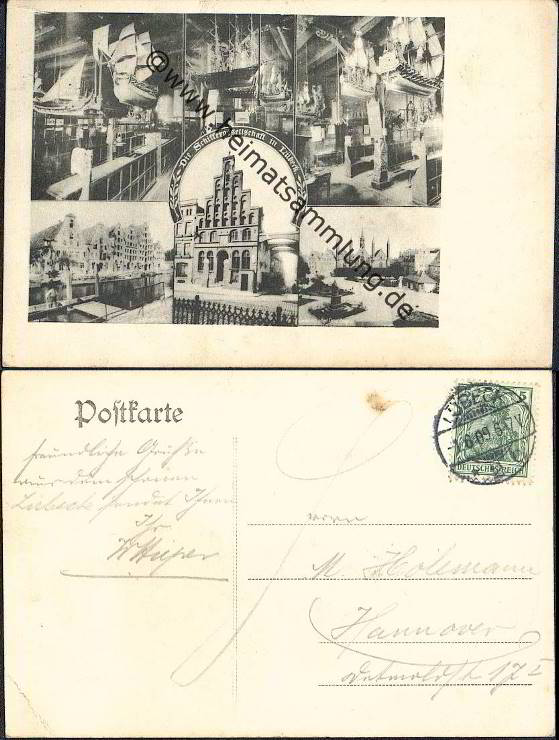 ©www.heimatsammlung.de
Die Schiffergesellschaft in Lübeck
Postkarte
LÜBECK
5
DEUTSCHES REICH
freundliche Grüsse
aus dem schönen
Lübeck sendet Ihnen
Ihr
Herrn
M. Holemann
Hannover
Detmoldstr. 17 I